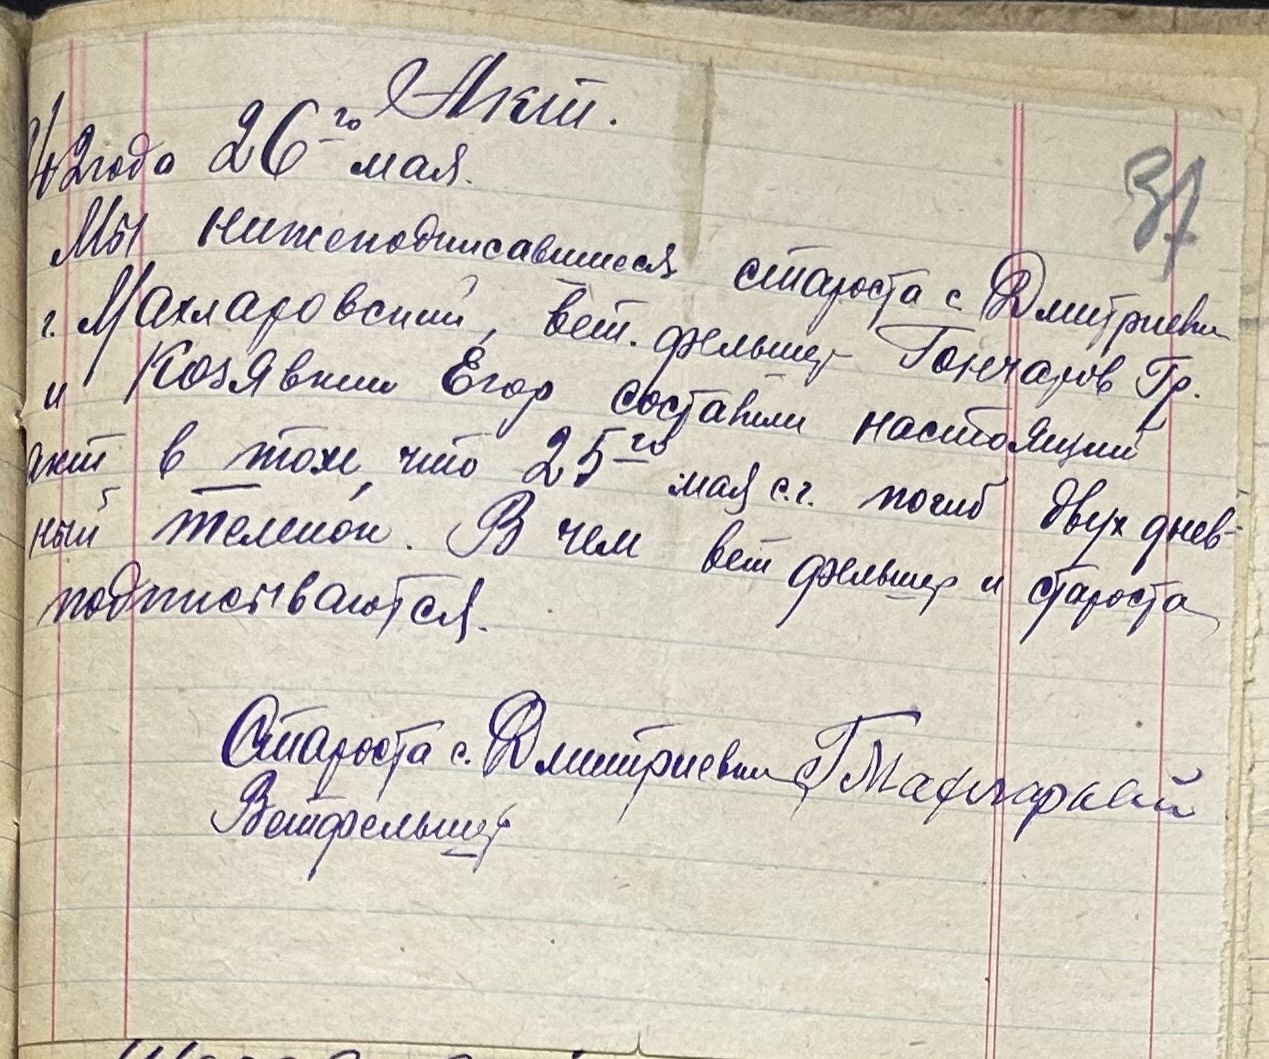 Акт.
42 года 26го мая.
37
Мы нижеподписавшиеся староста с. Дмитриевки
г. Махларовский, вет. фельшер Гончаров Гр.
и Козявкин Егор составили настоящий
акт в том, что 25го мая с.г. погиб двух днев-
ный теленок. В чем вет фельшер и староста
подписываются.
Староста с. Дмитриевки
Ветфельшер